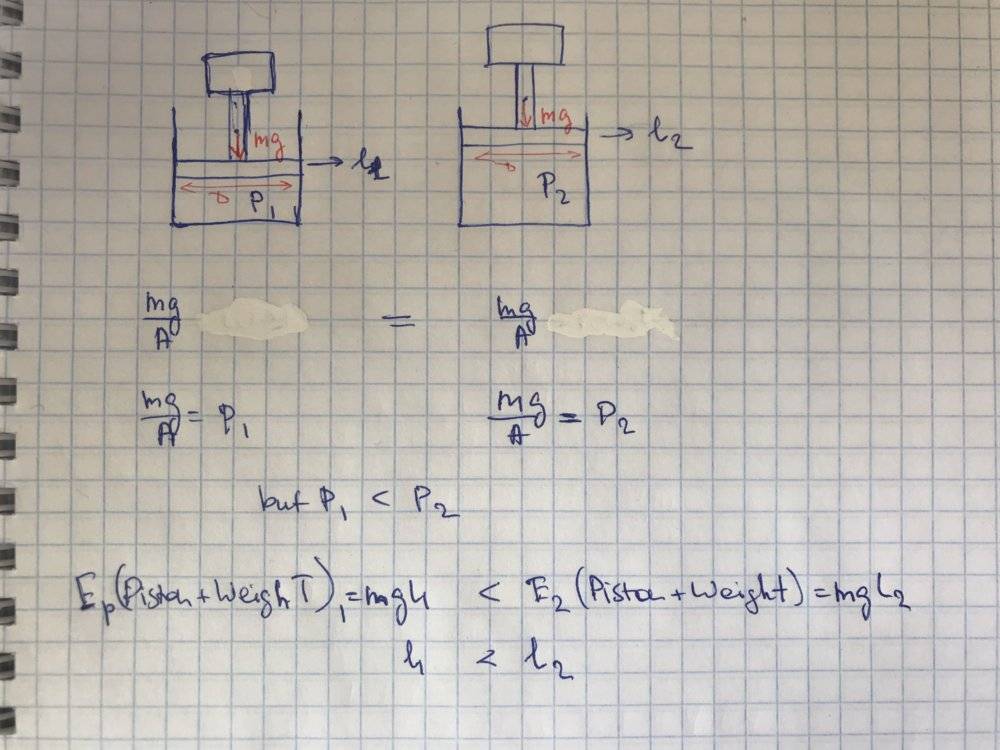 mg → l1
mg → l2
D P1
D P2
mg/A = mg/A
mg/A = P1 mg/A = P2
but P1 < P2
Ep(Piston+WeighT)1=mgl1 < E2(Piston+Weight)=mgl2
l1 < l2